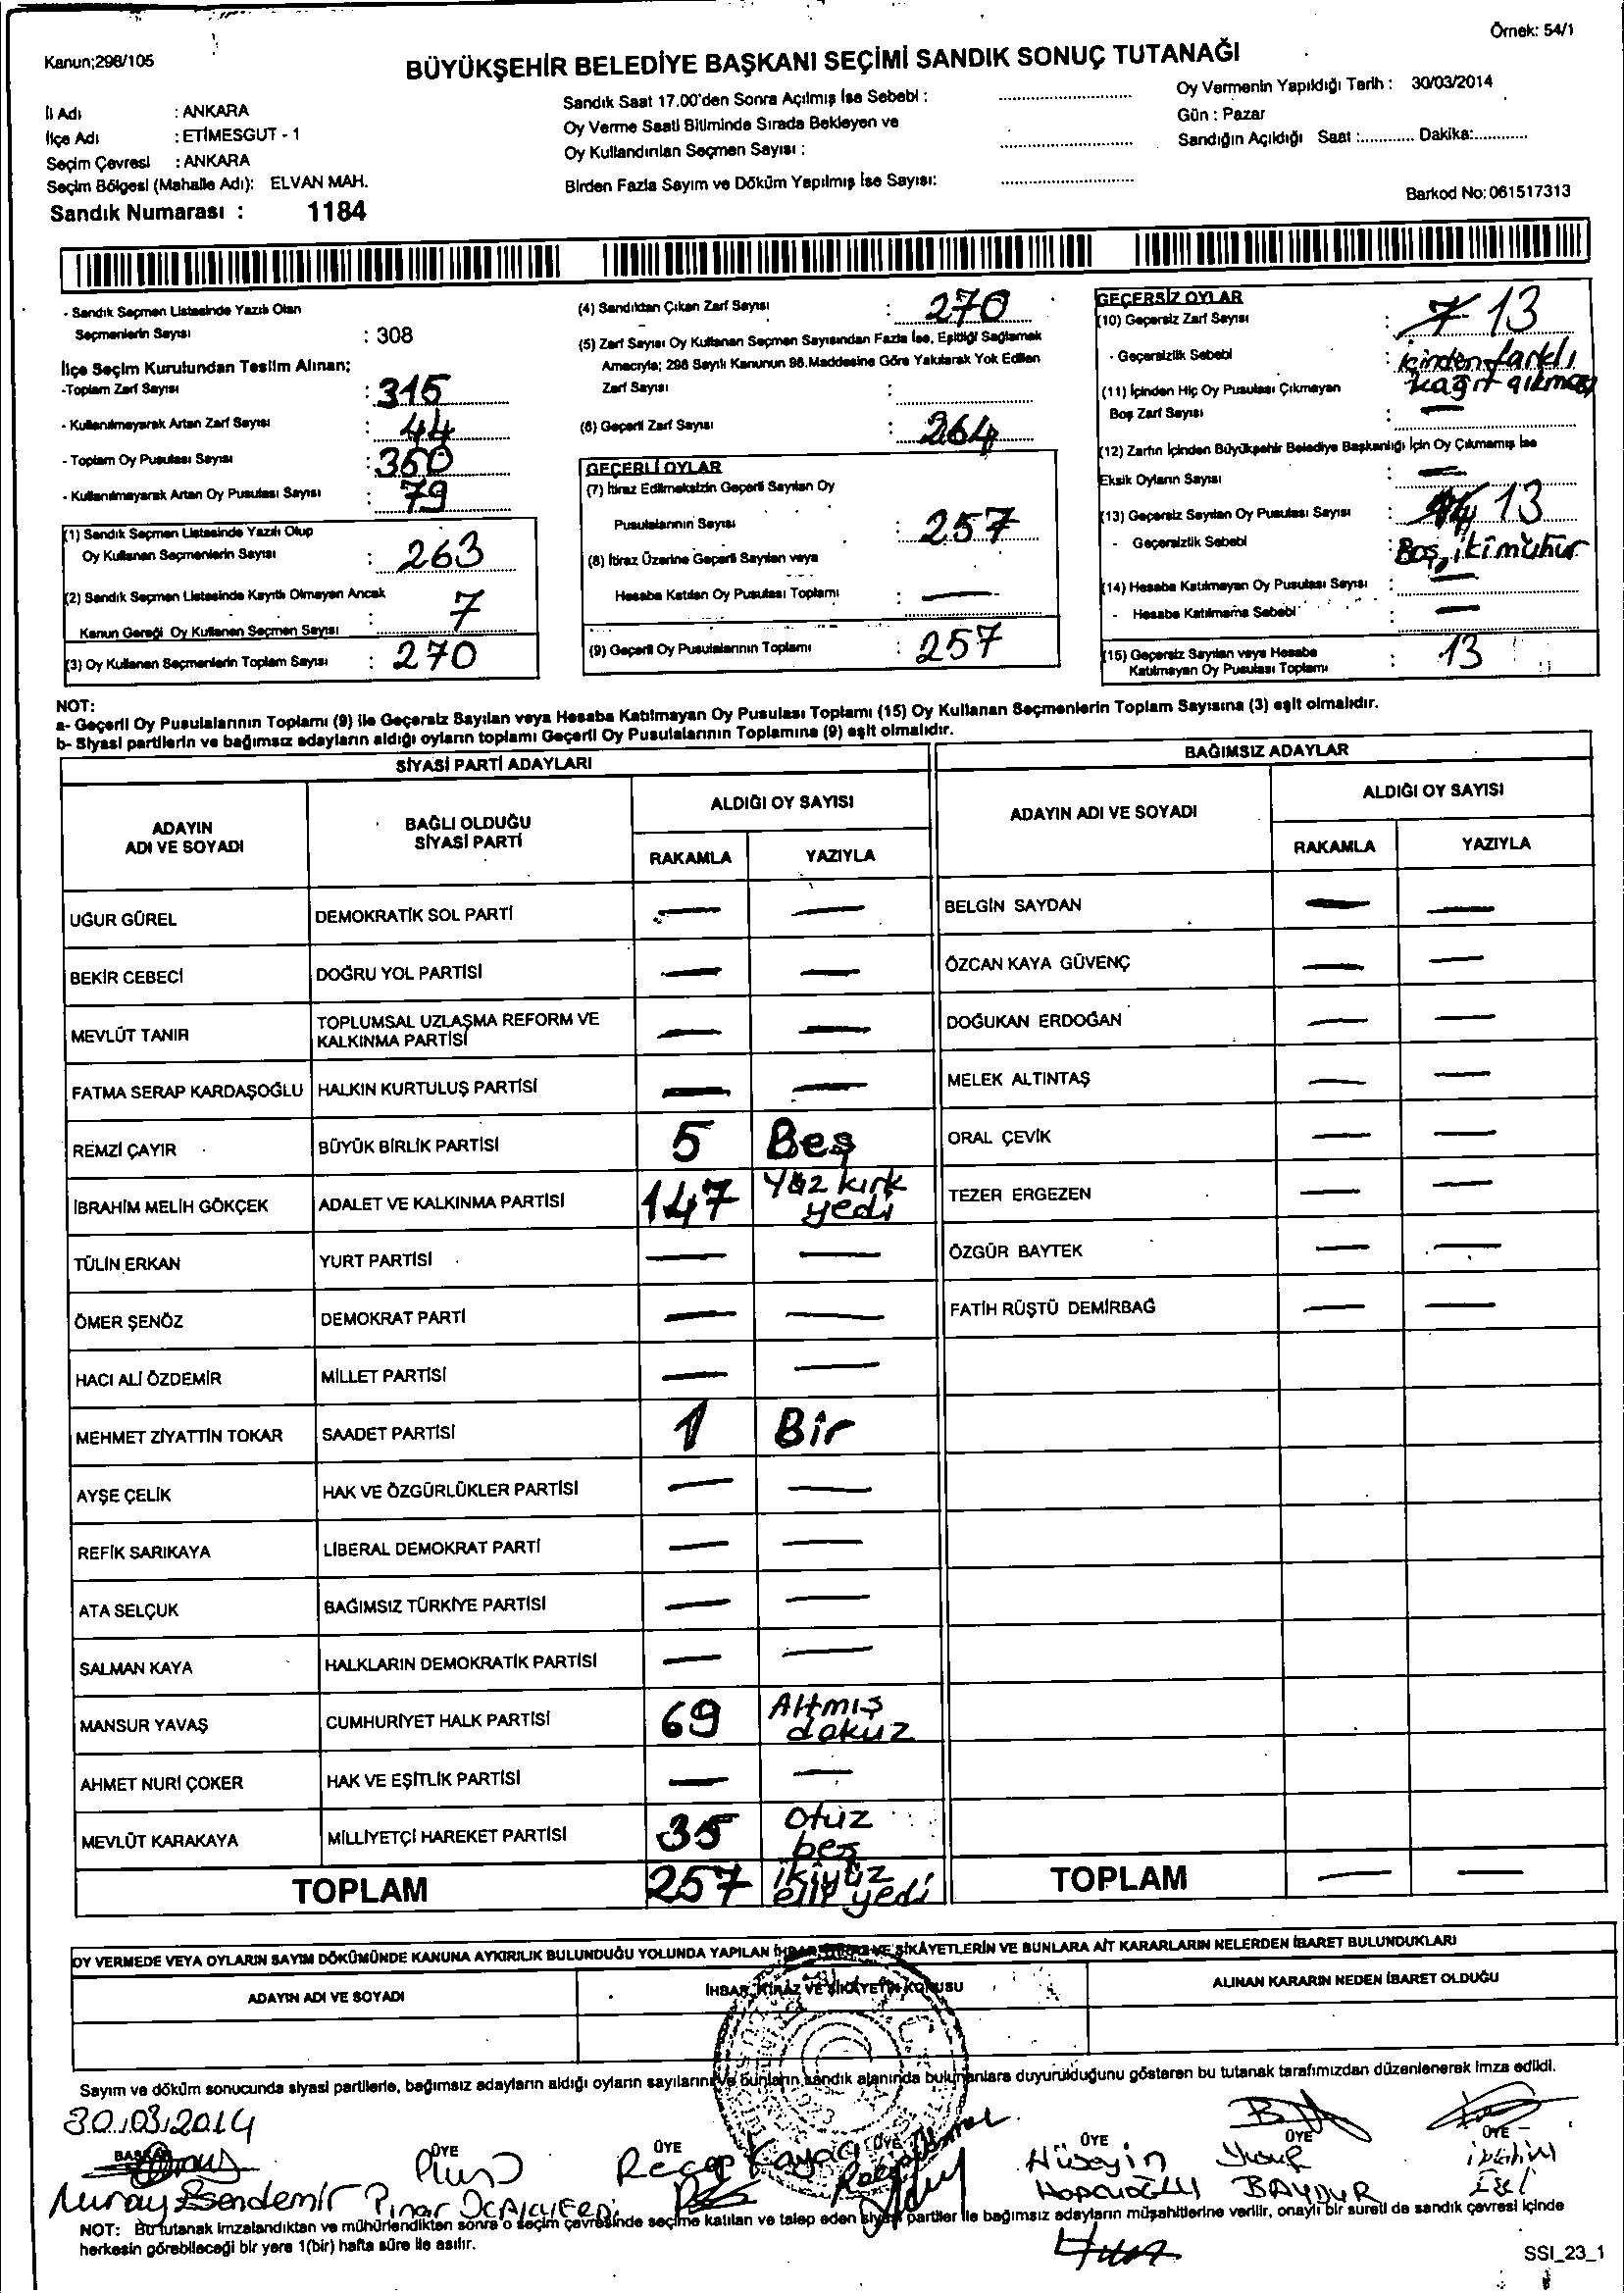 Örnek: 54/1
Kanun;298/105
BÜYÜKŞEHİR BELEDİYE BAŞKANI SEÇİMİ SANDIK SONUÇ TUTANAĞI
İl Adı : ANKARA
İlçe Adı : ETİMESGUT - 1
Seçim Çevresi : ANKARA
Seçim Bölgesi (Mahalle Adı): ELVAN MAH.
Sandık Numarası : 1184
Sandık Saat 17.00'den Sonra Açılmış İse Sebebi :
Oy Verme Saati Bitiminde Sırada Bekleyen ve
Oy Kullandırılan Seçmen Sayısı :
Birden Fazla Sayım ve Döküm Yapılmış İse Sayısı:
Oy Vermenin Yapıldığı Tarih : 30/03/2014
Gün : Pazar
Sandığın Açıldığı Saat :............ Dakika:............
Barkod No: 061517313
- Sandık Seçmen Listesinde Yazılı Olan
Seçmenlerin Sayısı : 308
İlçe Seçim Kurulundan Teslim Alınan;
-Toplam Zarf Sayısı : 315
- Kullanılmayarak Artan Zarf Sayısı : 44
- Toplam Oy Pusulası Sayısı : 350
- Kullanılmayarak Artan Oy Pusulası Sayısı : 79
(1) Sandık Seçmen Listesinde Yazılı Olup
Oy Kullanan Seçmenlerin Sayısı : 263
(2) Sandık Seçmen Listesinde Kayıtlı Olmayan Ancak
Kanun Gereği Oy Kullanan Seçmen Sayısı : 7
(3) Oy Kullanan Seçmenlerin Toplam Sayısı : 270
(4) Sandıktan Çıkan Zarf Sayısı : 270
(5) Zarf Sayısı Oy Kullanan Seçmen Sayısından Fazla İse, Eşitliği Sağlamak
Amacıyla; 298 Sayılı Kanunun 98.Maddesine Göre Yakılarak Yok Edilen
Zarf Sayısı :
(6) Geçerli Zarf Sayısı : 264
GEÇERLİ OYLAR
(7) İtiraz Edilmeksizin Geçerli Sayılan Oy
Pusulalarının Sayısı : 257
(8) İtiraz Üzerine Geçerli Sayılan veya
Hesaba Katılan Oy Pusulası Toplamı : —
(9) Geçerli Oy Pusulalarının Toplamı : 257
GEÇERSİZ OYLAR
(10) Geçersiz Zarf Sayısı : 7 13
- Geçersizlik Sebebi : İçinden farklı
kağıt çıkması
(11) İçinden Hiç Oy Pusulası Çıkmayan
Boş Zarf Sayısı : —
(12) Zarfın İçinden Büyükşehir Belediye Başkanlığı İçin Oy Çıkmamış İse
Eksik Oyların Sayısı : —
(13) Geçersiz Sayılan Oy Pusulası Sayısı : 13
- Geçersizlik Sebebi : Boş, iki mühür
(14) Hesaba Katılmayan Oy Pusulası Sayısı : —
- Hesaba Katılmama Sebebi : —
(15) Geçersiz Sayılan veya Hesaba
Katılmayan Oy Pusulası Toplamı : 13
NOT:
a- Geçerli Oy Pusulalarının Toplamı (9) ile Geçersiz Sayılan veya Hesaba Katılmayan Oy Pusulası Toplamı (15) Oy Kullanan Seçmenlerin Toplam Sayısına (3) eşit olmalıdır.
b- Siyasi partilerin ve bağımsız adayların aldığı oyların toplamı Geçerli Oy Pusulalarının Toplamına (9) eşit olmalıdır.
SİYASİ PARTİ ADAYLARI
ADAYIN ADI VE SOYADI BAĞLI OLDUĞU SİYASİ PARTİ ALDIĞI OY SAYISI
RAKAMLA YAZIYLA
UĞUR GÜREL DEMOKRATİK SOL PARTİ — —
BEKİR CEBECİ DOĞRU YOL PARTİSİ — —
MEVLÜT TANIR TOPLUMSAL UZLAŞMA REFORM VE KALKINMA PARTİSİ — —
FATMA SERAP KARDAŞOĞLU HALKIN KURTULUŞ PARTİSİ — —
REMZİ ÇAYIR BÜYÜK BİRLİK PARTİSİ 5 Beş
İBRAHİM MELİH GÖKÇEK ADALET VE KALKINMA PARTİSİ 147 Yüz kırk yedi
TÜLİN ERKAN YURT PARTİSİ — —
ÖMER ŞENÖZ DEMOKRAT PARTİ — —
HACI ALİ ÖZDEMİR MİLLET PARTİSİ — —
MEHMET ZİYATTİN TOKAR SAADET PARTİSİ 1 Bir
AYŞE ÇELİK HAK VE ÖZGÜRLÜKLER PARTİSİ — —
REFİK SARIKAYA LİBERAL DEMOKRAT PARTİ — —
ATA SELÇUK BAĞIMSIZ TÜRKİYE PARTİSİ — —
SALMAN KAYA HALKLARIN DEMOKRATİK PARTİSİ — —
MANSUR YAVAŞ CUMHURİYET HALK PARTİSİ 69 Altmış dokuz
AHMET NURİ ÇOKER HAK VE EŞİTLİK PARTİSİ — —
MEVLÜT KARAKAYA MİLLİYETÇİ HAREKET PARTİSİ 35 otuz beş
TOPLAM 257 ikiyüz elli yedi
BAĞIMSIZ ADAYLAR
ADAYIN ADI VE SOYADI ALDIĞI OY SAYISI
RAKAMLA YAZIYLA
BELGİN SAYDAN — —
ÖZCAN KAYA GÜVENÇ — —
DOĞUKAN ERDOĞAN — —
MELEK ALTINTAŞ — —
ORAL ÇEVİK — —
TEZER ERGEZEN — —
ÖZGÜR BAYTEK — —
FATİH RÜŞTÜ DEMİRBAĞ — —
TOPLAM — —
OY VERMEDE VEYA OYLARIN SAYIM DÖKÜMÜNDE KANUNA AYKIRILIK BULUNDUĞU YOLUNDA YAPILAN İHBAR, İTİRAZ VE ŞİKÂYETLERİN VE BUNLARA AİT KARARLARIN NELERDEN İBARET BULUNDUKLARI
ADAYIN ADI VE SOYADI İHBAR, İTİRAZ VE ŞİKÂYETİN KONUSU ALINAN KARARIN NEDEN İBARET OLDUĞU
Sayım ve döküm sonucunda siyasi partilerle, bağımsız adayların aldığı oyların sayılarını ve bunların sandık alanında bulunanlara duyurulduğunu gösteren bu tutanak tarafımızdan düzenlenerek imza edildi.
30.03.2014
BAŞKAN ÜYE ÜYE ÜYE ÜYE ÜYE ÜYE
Nuray Esendemir Pınar Recep Kayacı Hüseyin Yusuf BAYDUR
NOT: Bu tutanak imzalandıktan ve mühürlendikten sonra o seçim çevresinde seçime katılan ve talep eden siyasi partiler ile bağımsız adayların müşahitlerine verilir, onaylı bir sureti de sandık çevresi içinde
herkesin görebileceği bir yere 1(bir) hafta süre ile asılır.
SSI_23_1